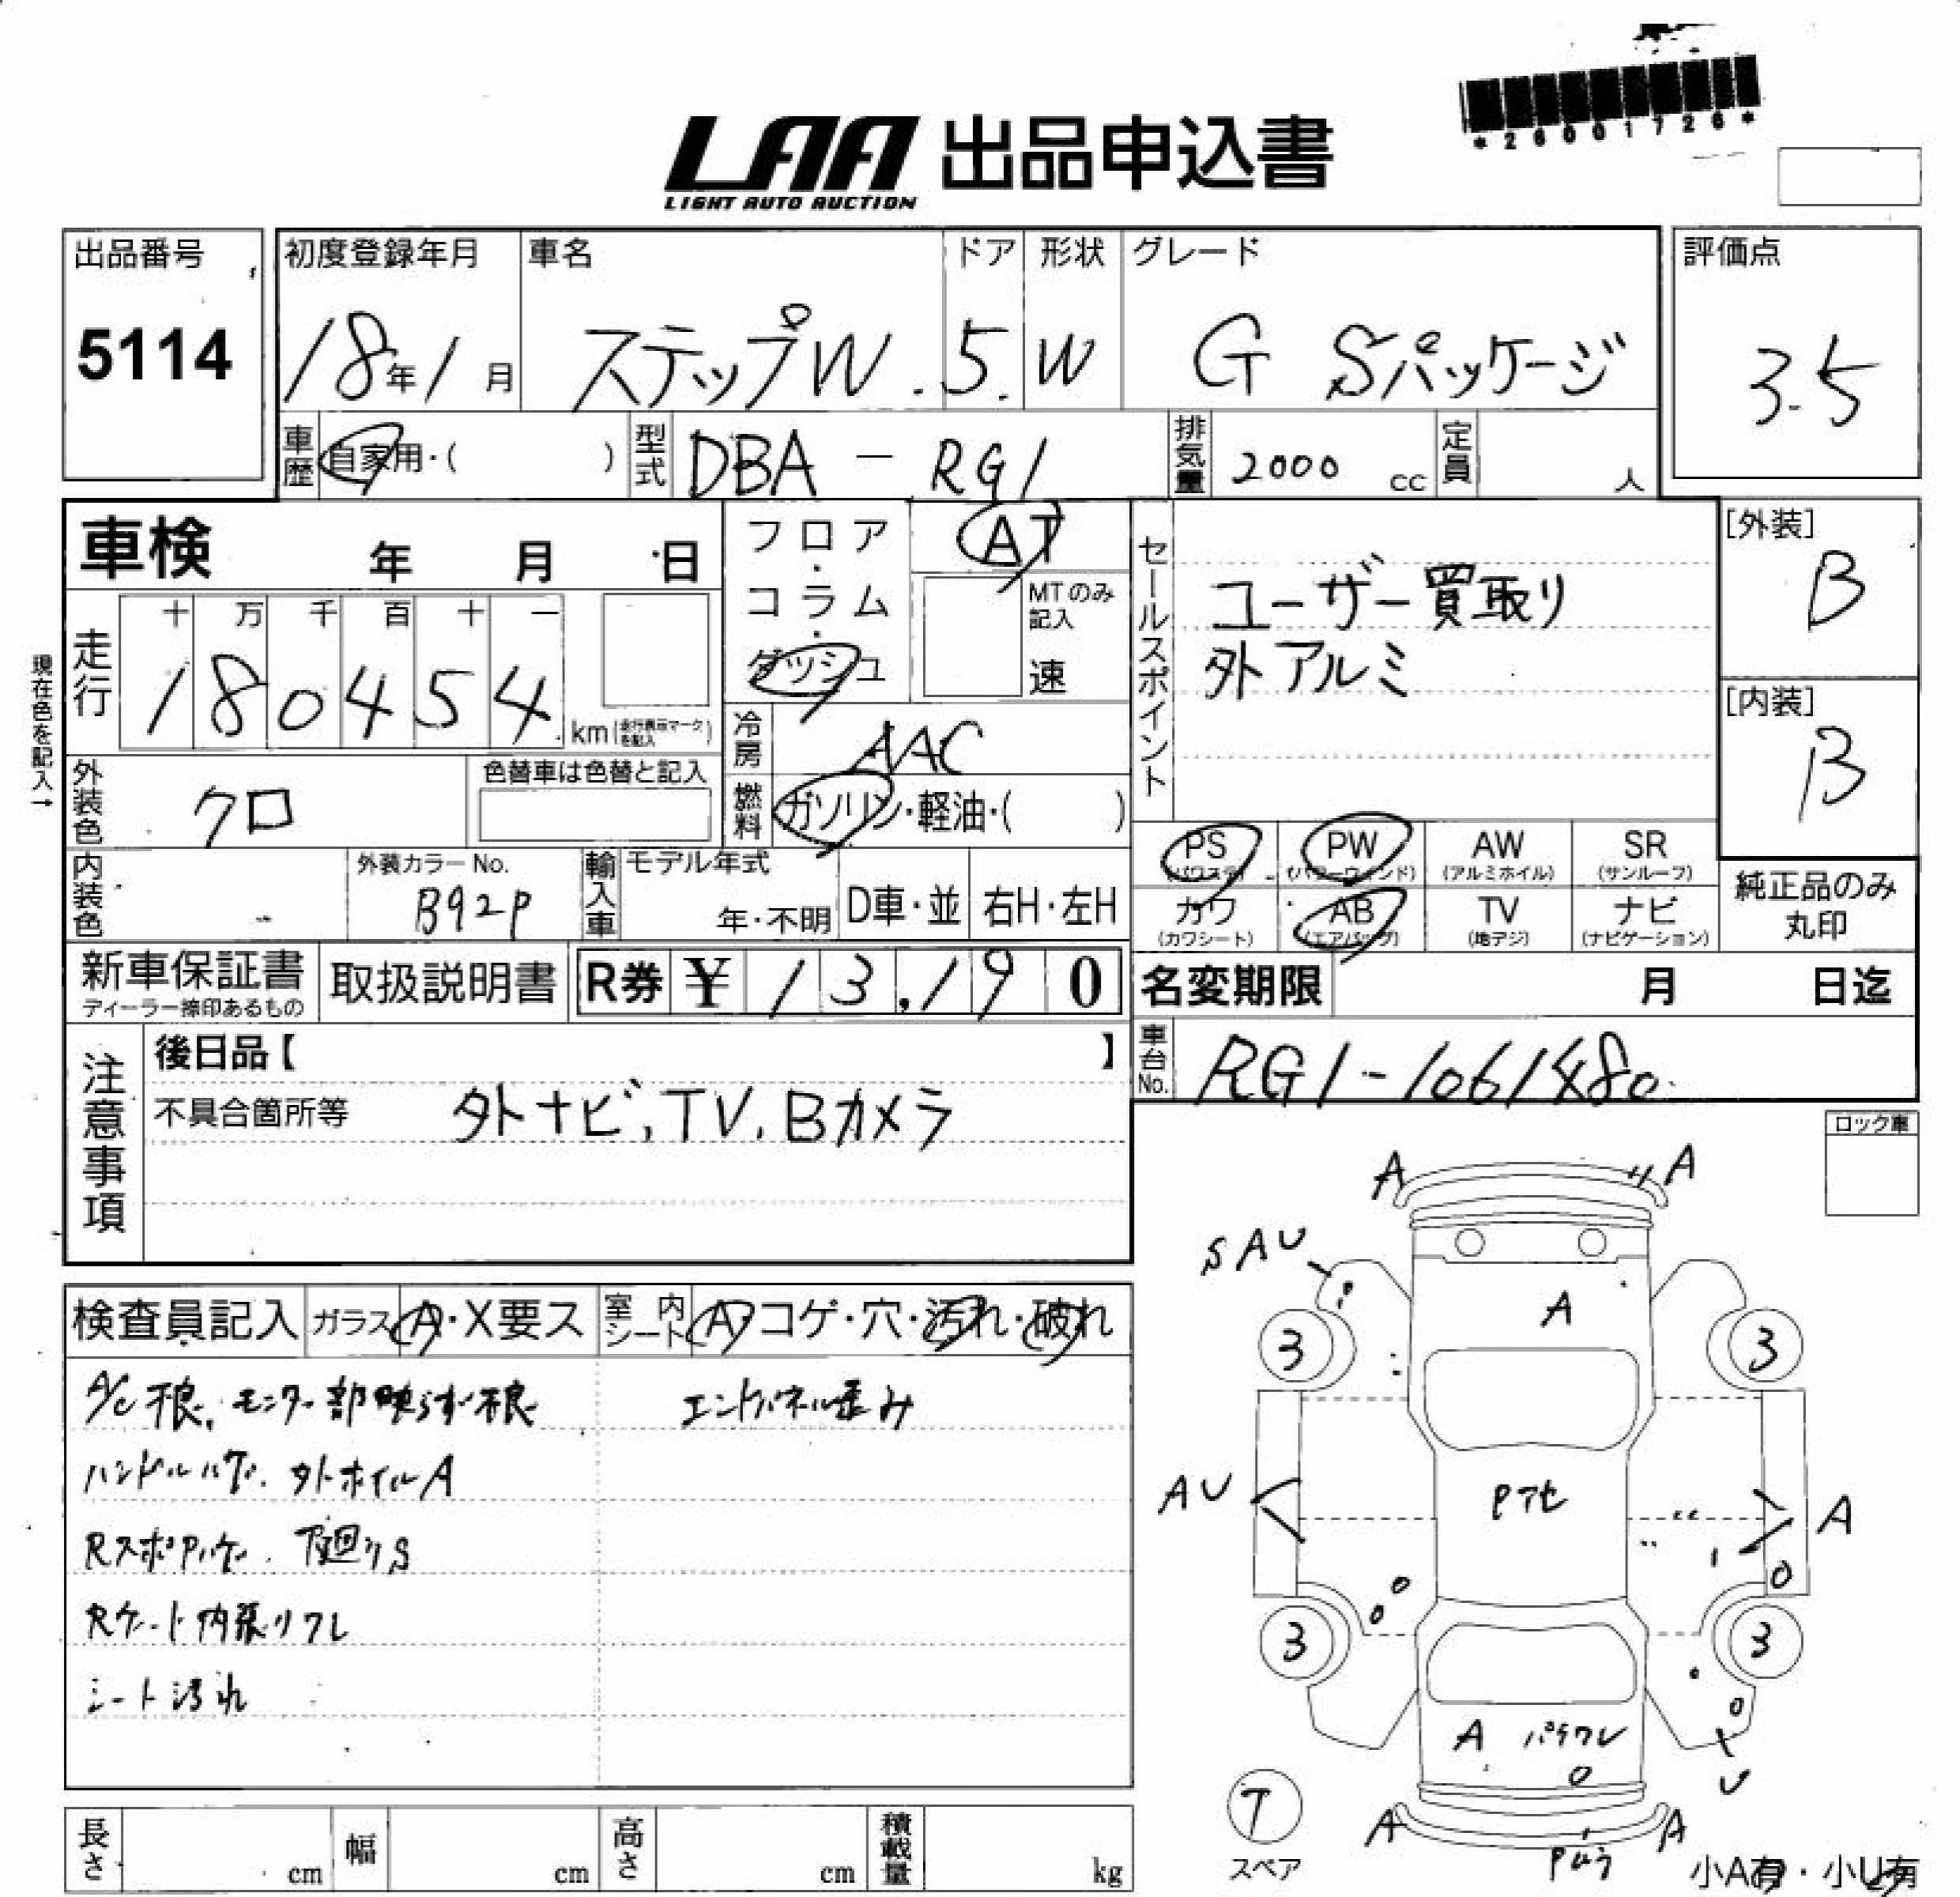 *26001726*
LAA 出品申込書
LIGHT AUTO AUCTION
出品番号
5114
初度登録年月
18年1月
車名
ステップW
ドア
5
形状
W
グレード
G Sパッケージ
評価点
3.5
車歴
自家用・( )
型式
DBA - RG1
排気量
2000 cc
定員
人
車検 年 月 日
フロア・コラム・ダッシュ
AT
MTのみ記入
速
セールスポイント
ユーザー買取り
外アルミ
[外装]
B
[内装]
B
現在色を記入→
走行
十 万 千 百 十 一
180454
km(走行表示マークを記入)
冷房
AAC
外装色
クロ
色替車は色替と記入
燃料
ガソリン・軽油・( )
PS
(パワステ)
PW
(パワーウィンド)
AW
(アルミホイル)
SR
(サンルーフ)
カワ
(カワシート)
AB
(エアバッグ)
TV
(地デジ)
ナビ
(ナビゲーション)
純正品のみ
丸印
内装色
外装カラーNo.
B92P
輸入車
モデル年式
年・不明
D車・並
右H・左H
新車保証書
ディーラー捺印あるもの
取扱説明書
R券 ¥ 13,190
名変期限 月 日迄
車台No.
RG1-1061480
注意事項
後日品【 】
不具合箇所等 外ナビ、TV、Bカメラ
ロック車
検査員記入
ガラス A・X要ス
室内シート A・コゲ・穴・汚れ・破れ
A/C不良、モニター部映らず不良
エンドパネル歪み
ハンドルハゲ、外ホイルA
RスポPハゲ、下廻りS
Rゲート内張りワレ
シート汚れ
A A
SAU
A
3 3
AU
Pアセ
A
3 3
A パラワレ
U
A A
T
スペア
小A有・小U有
長さ cm
幅 cm
高さ cm
積載量 kg